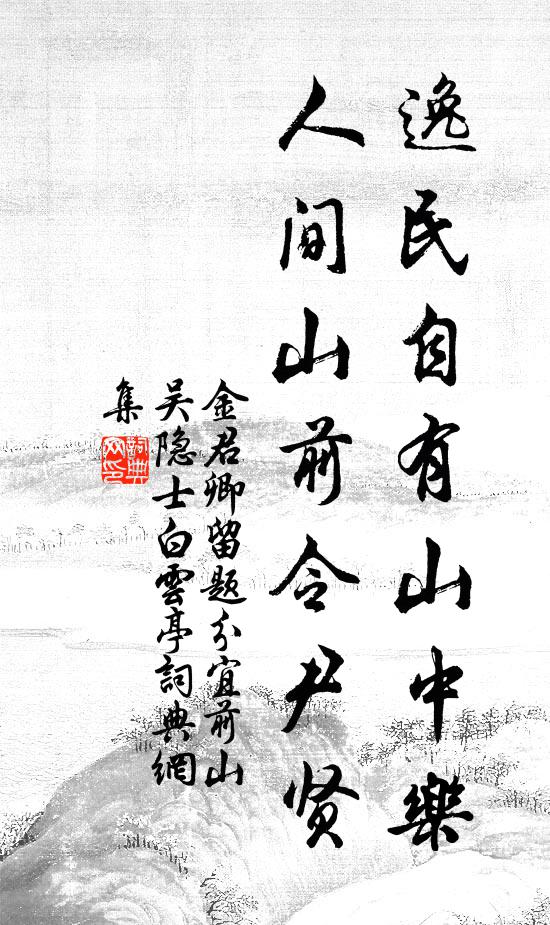 逸民自有山中樂
人间山前令尹贤
金君卿留題分宜前山
吴隐士白雲亭詞典網
集
詞典网印